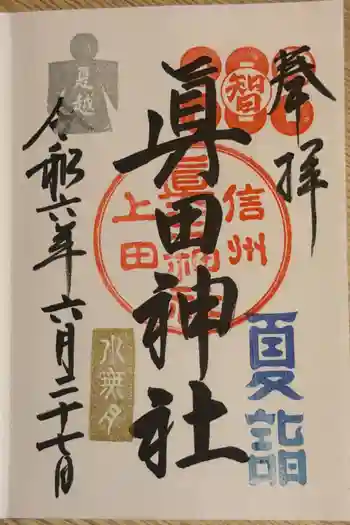 奉拝
智
信州
上田
眞田神社
夏詣
夏越
水無月
令和六年六月二十七日